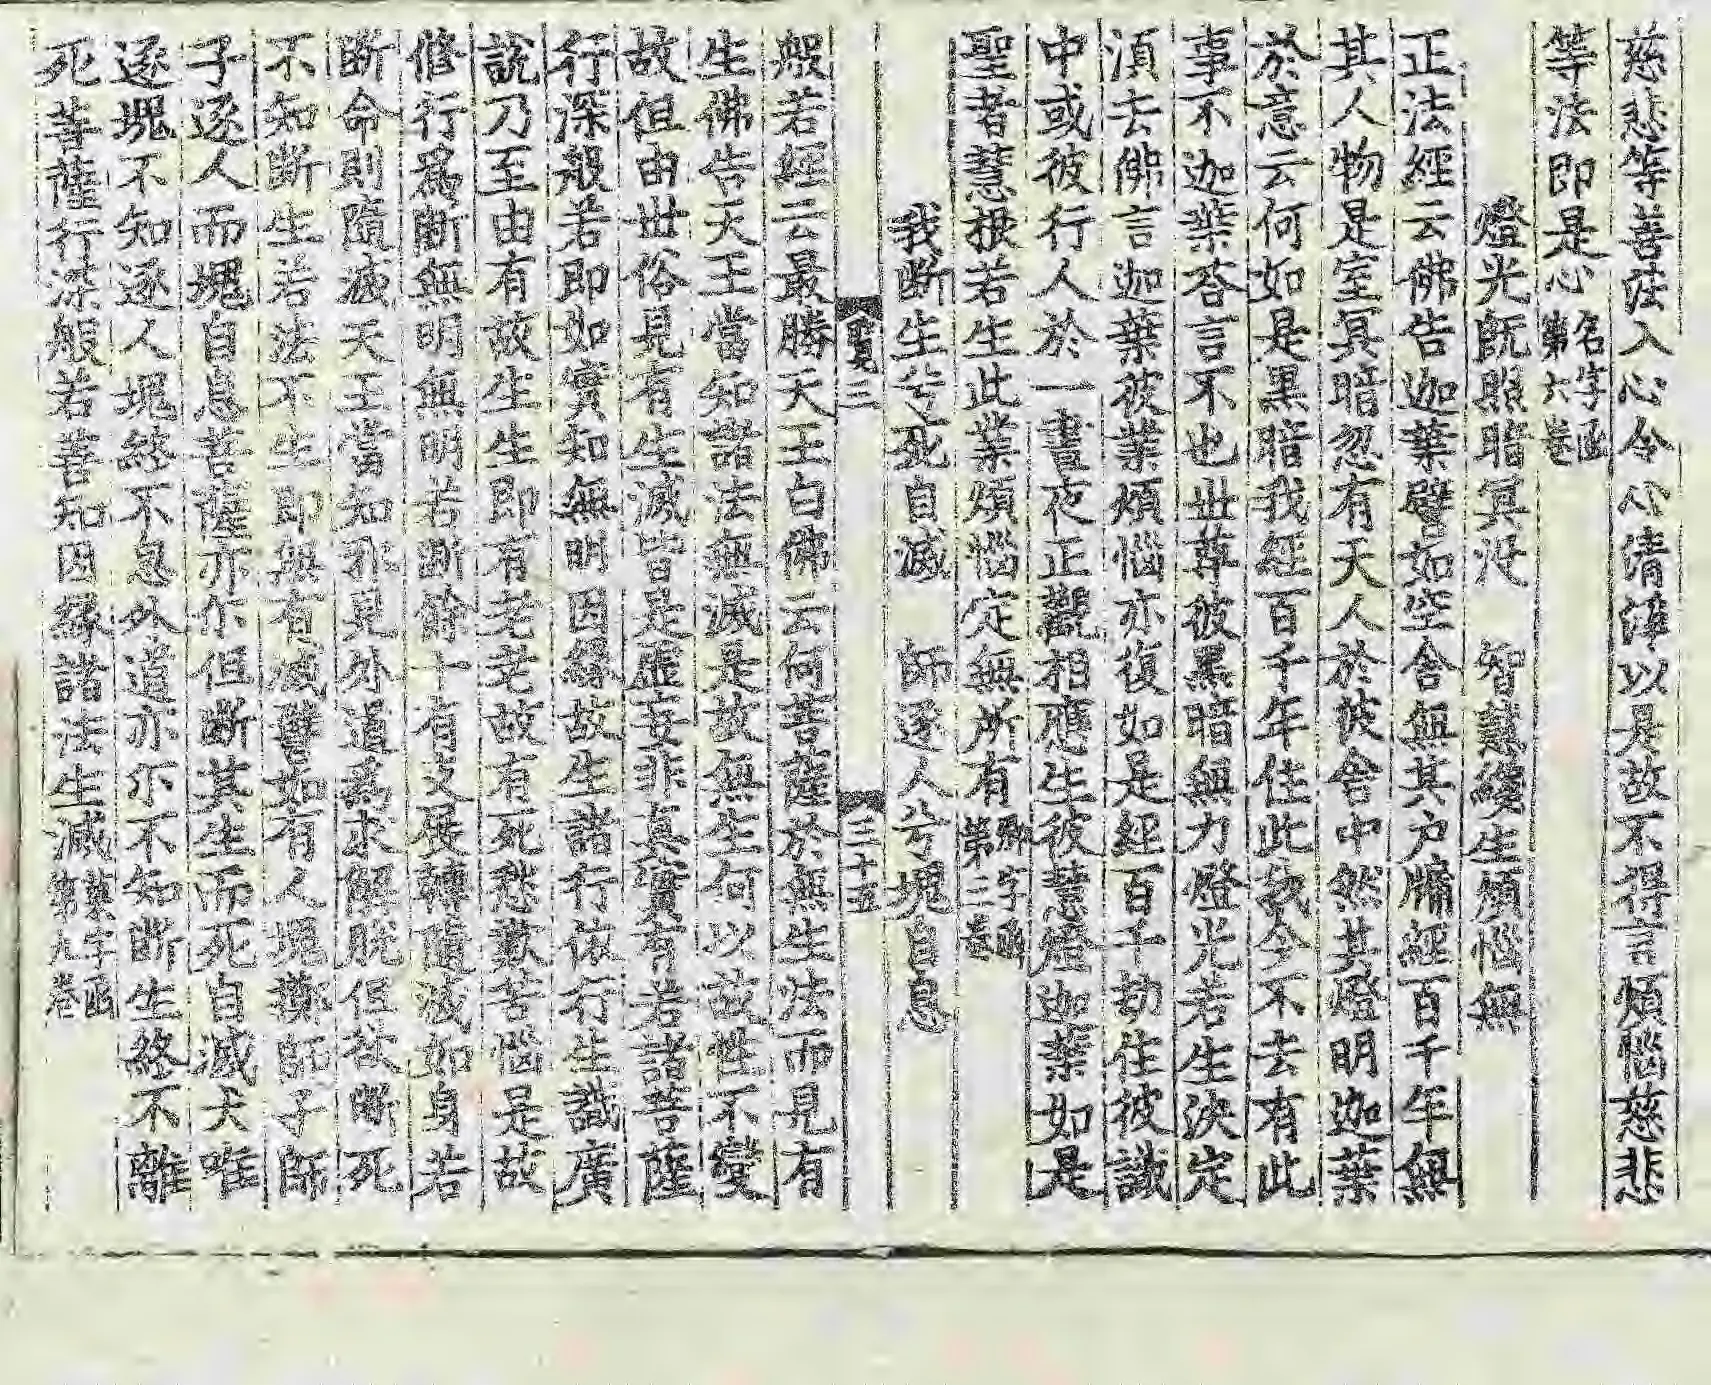 慈悲等善法入心令心清淨以是故不得言煩惱慈悲
等法即是心名字函第六卷
燈光旣照暗冥没　智慧纔生煩惱無
正法經云佛告迦葉譬如空舍無其户牖經百千年無
其人物是室冥暗忽有天人於彼舍中然其燈明迦葉
於意云何如是黑暗我經百千年住此我今不去有此
事不迦葉荅言不也世尊彼黑暗無力燈光若生決定
湏去佛言迦葉彼業煩惱亦復如是經百千劫住彼識
中或彼行人於一晝夜正觀相應生彼慧燈迦葉如是
聖者慧根若生此業煩惱定無所有卿字函第三卷
我斷生兮死自滅　師逐人兮塊自息
寳三　三十五
般若經云最勝天王白佛云何菩薩於無生法而見有
生佛告天王當知諸法無滅是故無生何以故性不變
故但由世俗見有生滅皆是虛妄非真實有若諸菩薩
行深般若即如實知無明因緣故生諸行依行生識廣
說乃至由有故生生即有老老故有死愁歎苦惱是故
修行爲斷無明無明若斷餘十有支展轉隨滅如身若
斷命則隨滅天王當知邪見外道爲求解脫但欲斷死
不知斷生若法不生即無有滅譬如有人塊擲師子師
子逐人而塊自息菩薩亦尒但斷其生而死自滅犬唯
逐塊不知逐人塊終不息外道亦尒不知斷生終不離
死菩薩行深般若善知因緣諸法生滅菜字函第九卷